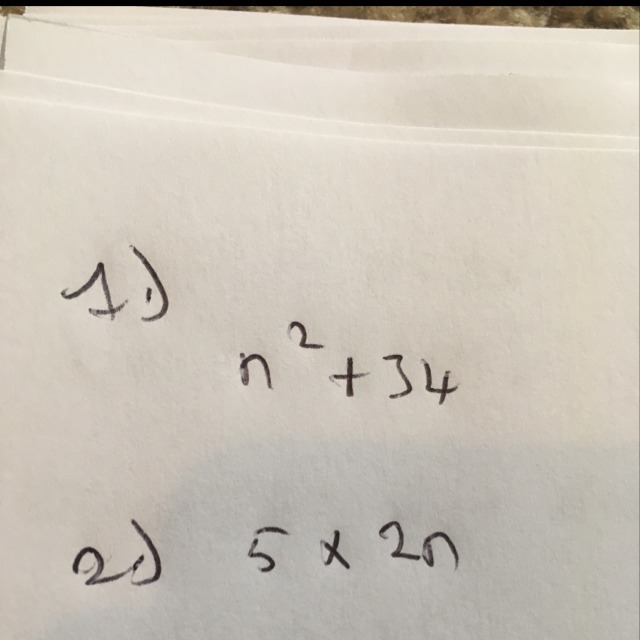 1.)
n² + 34
2.) 5 x 2n